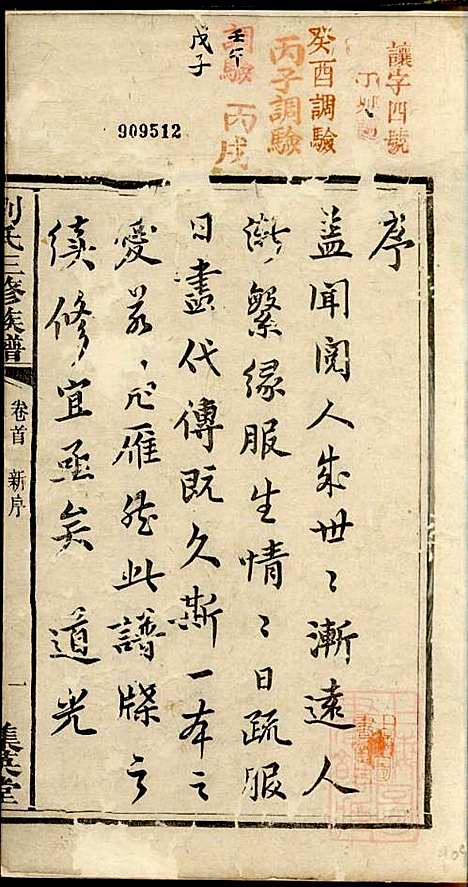 讓字四號
癸酉調驗
丙子調驗
調驗
丙戌
壬午
戊子
909512
序
盖聞閱人成世〻漸遠人
漸繁緣服生情〻日疏服
日盡代傳既久斯一本之
愛 雁然此譜牒之
續修宜亟矣 道光
劉氏三修族譜
卷首 新序
一
集英堂